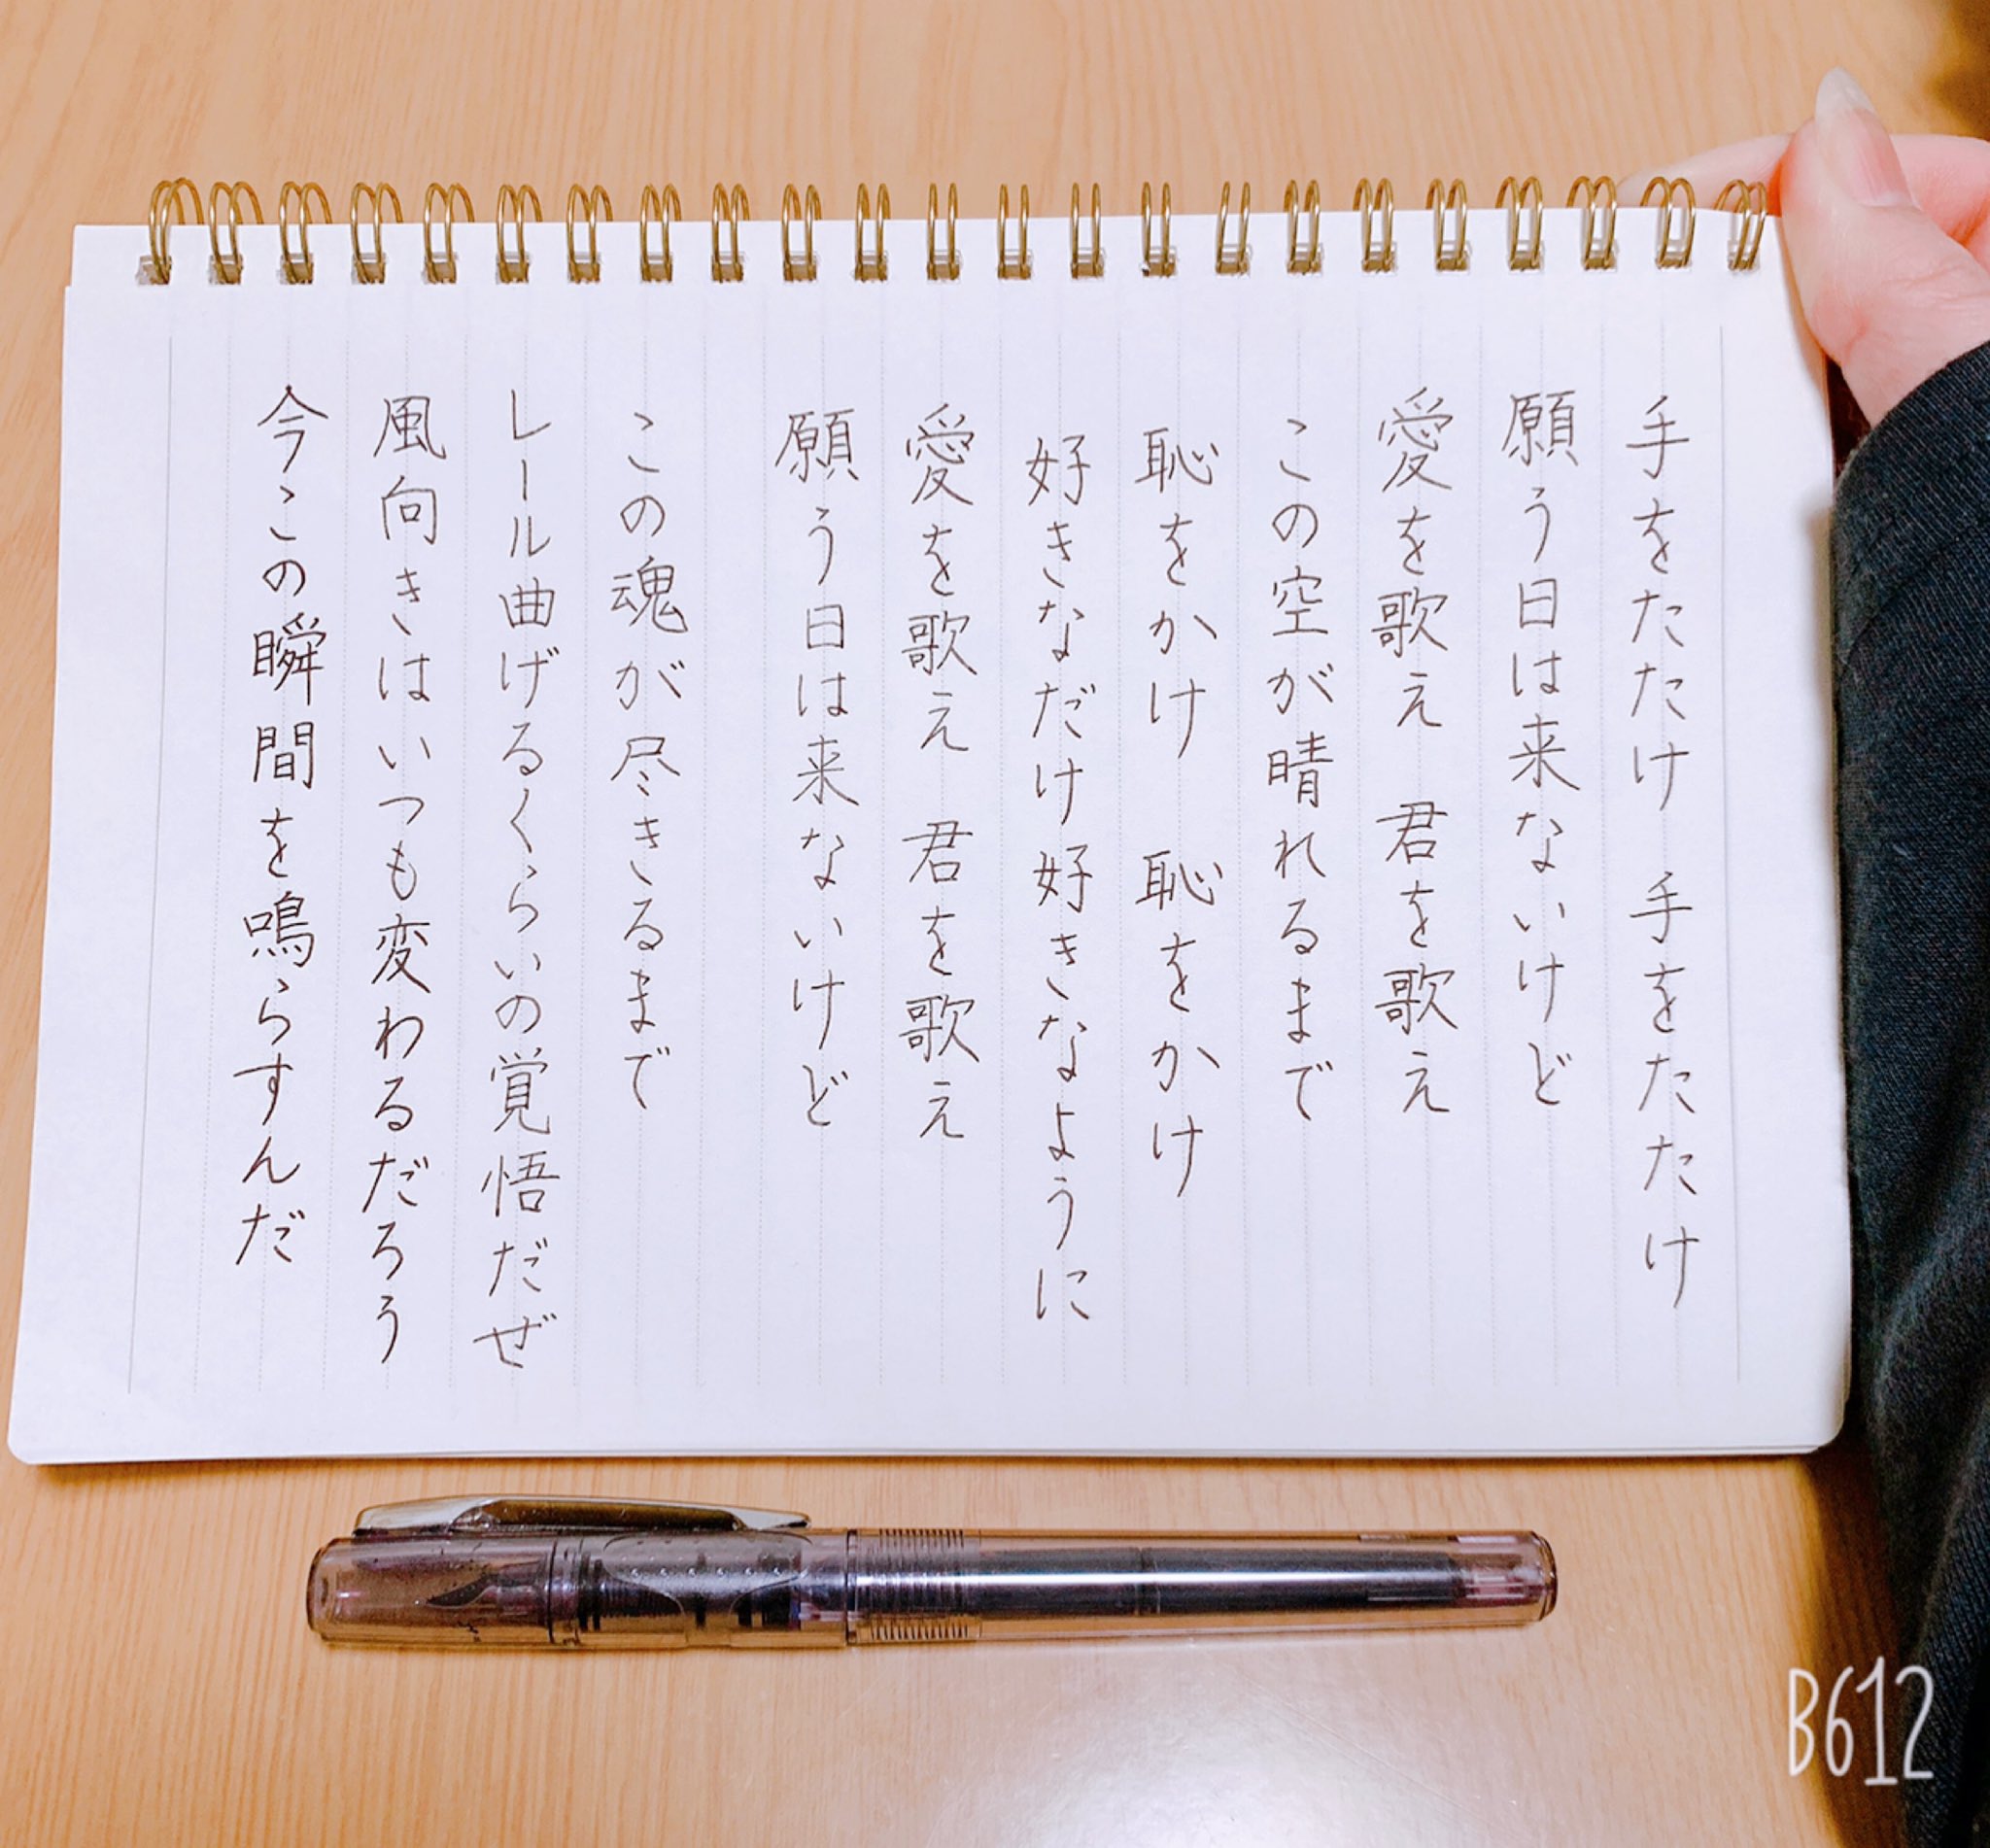 手をたたけ　手をたたけ
願う日は来ないけど
愛を歌え　君を歌え
この空が晴れるまで
恥をかけ　恥をかけ
好きなだけ好きなように
愛を歌え　君を歌え
願う日は来ないけど
この魂が尽きるまで
レール曲げるくらいの覚悟だぜ
風向きはいつも変わるだろう
今この瞬間を鳴らすんだ
B612